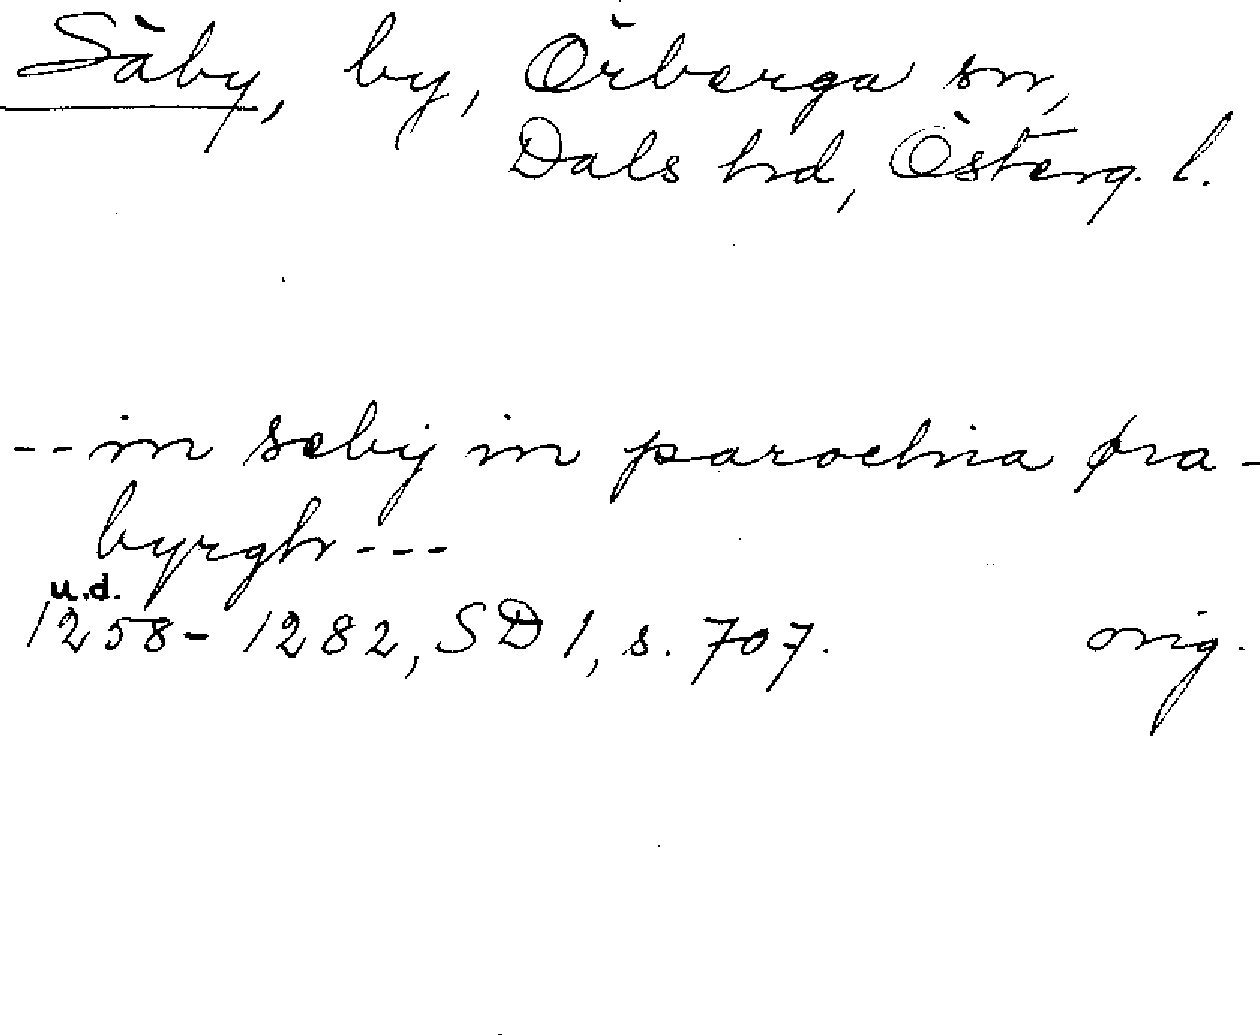 Säby, by, Örberga sn,
Dals hd, Österg. l.
--in sæby in parochia øra-
byrgh---
u.d.
1258-1282, SD 1, s. 707. orig.